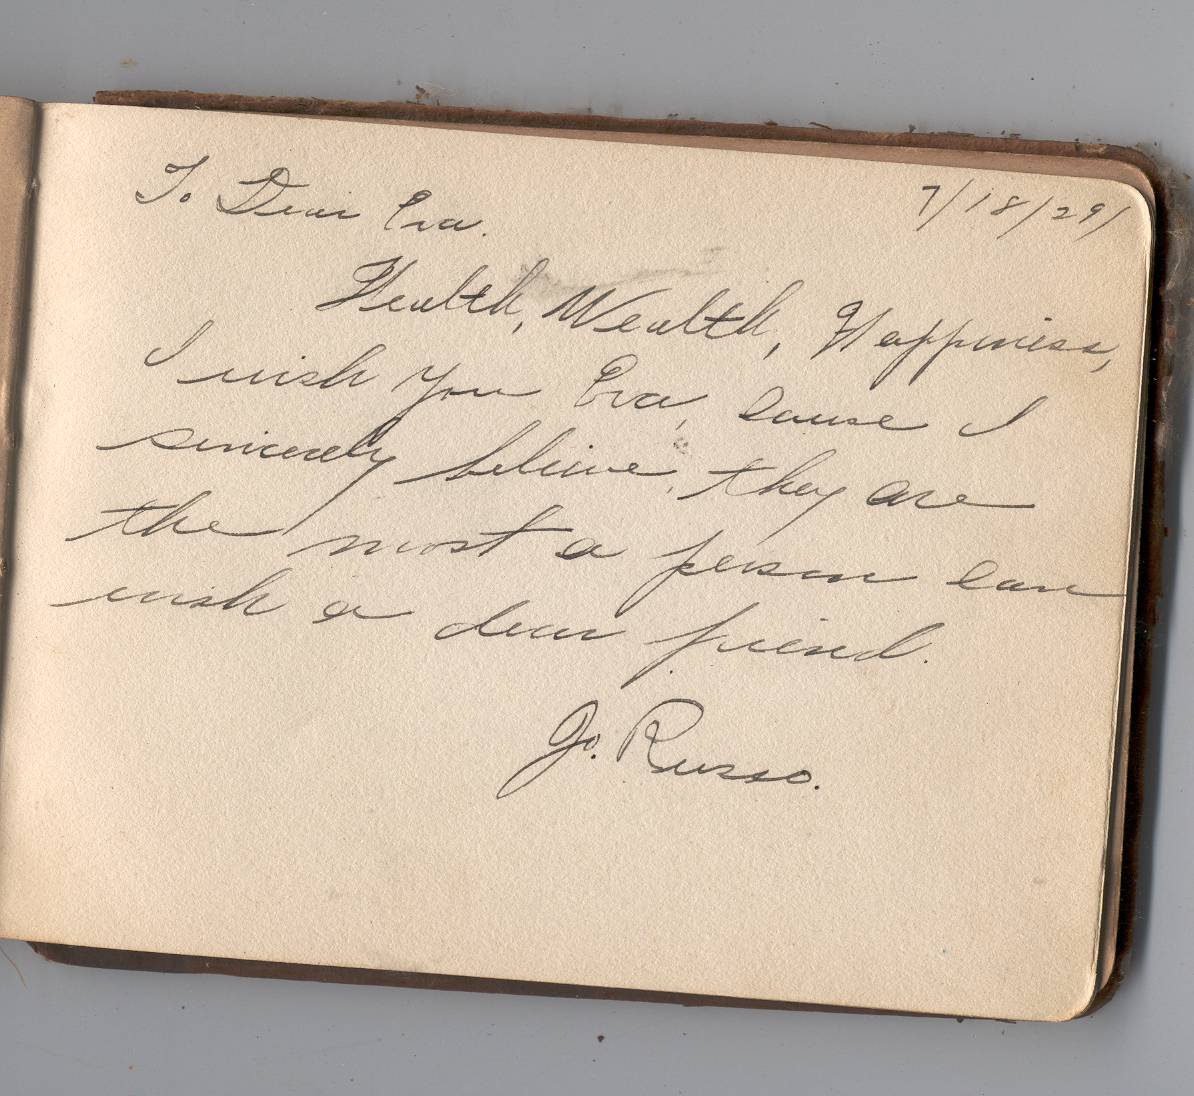 7/18/29/
To Dear Eva.
Health, Wealth, Happiness,
I wish you Eva, cause I
sincerely believe, they are
the most a person can
wish a dear friend.
Jo. Russo.